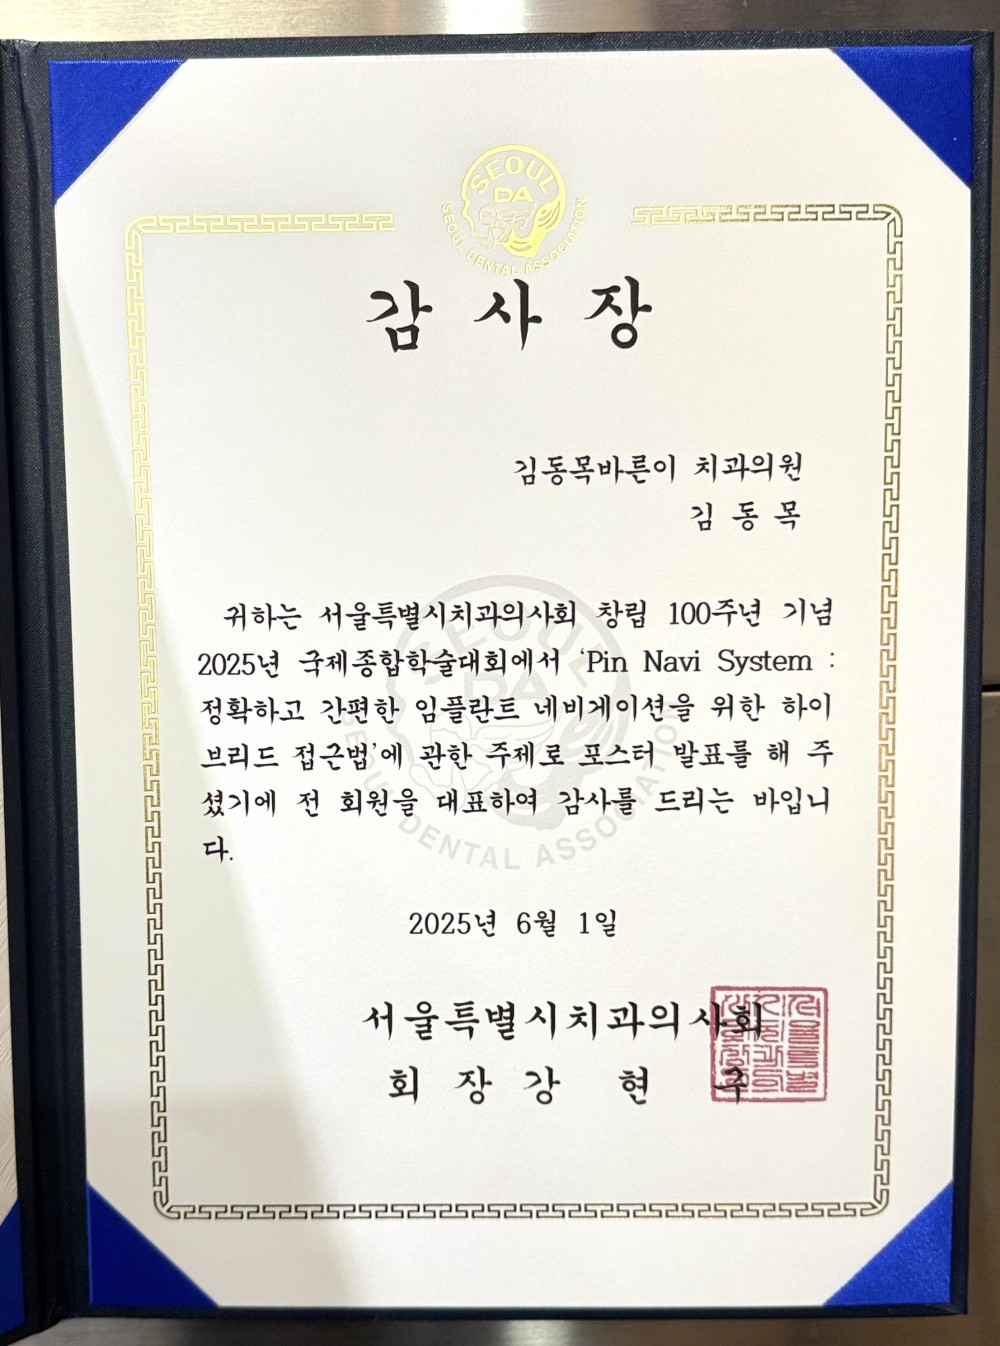 SEOUL
DA
SEOUL DENTAL ASSOCIATION
감 사 장
김동목바른이 치과의원
김 동 목
귀하는 서울특별시치과의사회 창립 100주년 기념
2025년 국제종합학술대회에서 ‘Pin Navi System :
정확하고 간편한 임플란트 네비게이션을 위한 하이
브리드 접근법’에 관한 주제로 포스터 발표를 해 주
셨기에 전 회원을 대표하여 감사를 드리는 바입니
다.
SEOUL
DA
SEOUL DENTAL ASSOCIATION
2025년 6월 1일
서울특별시치과의사회
회 장 강 현 구